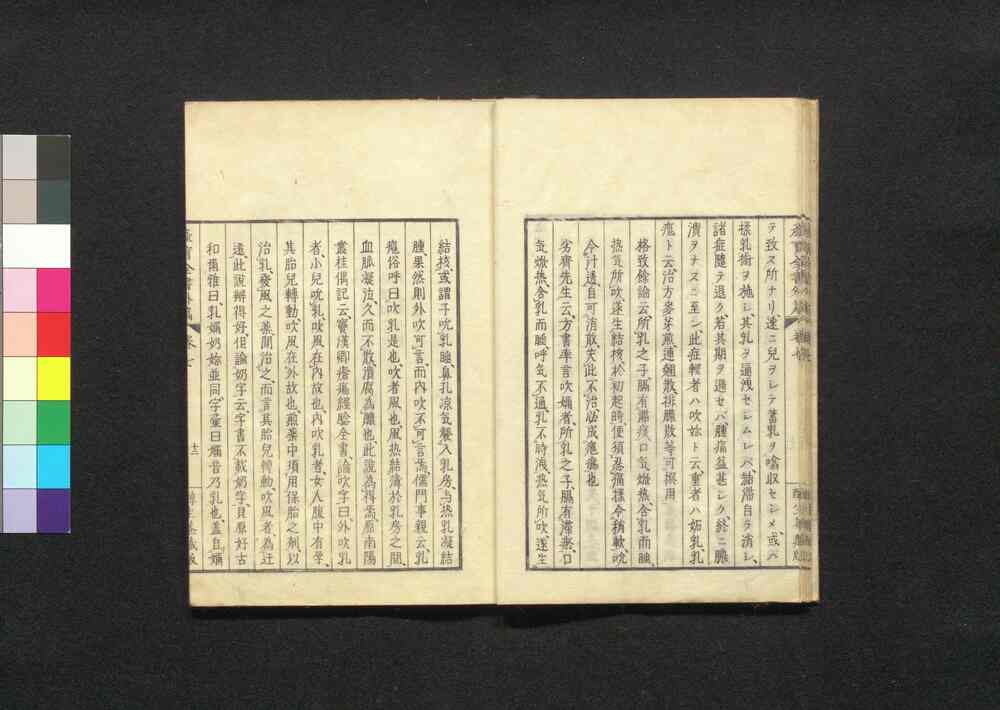 テ致ス所ナリ速ニ兒ヲシテ蓄乳ヲ喰収セシメ或ハ
揉乳術ヲ施シ其乳ヲ漏洩セシムレハ結滞自ラ消シ
諸症随テ退ク若其期ヲ過セハ腫痛益甚シク終ニ膿
潰ヲナスニ至シ此症輕者ハ吹妳ト云重者ハ妬乳乳
癰ト云治方麥芽煎連翹散排膿散等可撰用
格致餘論云所乳之子膈有滞痰口気燉热含乳而睡
热気所吹遂生結核於初起時便須忍痛揉令稍軟吮
令汁透自可消散失此不治必成癰癤也
劣齊先生云方書率言吹嬭者所乳之子膈有滞熱口
気燉热含乳而睡呼気不通乳不時洩热気所吹遂生
結核或謂子吮乳睡鼻孔凉気襲入乳房与热乳凝結
腫果然則外吹可言而内吹不可言焉儒門事親云乳
癰俗呼曰吹乳是也吹者風也風热結薄於乳房之間
血脈凝泣久而不散潰腐為膿也此說為得焉原南陽
叢桂偶記云竇漢卿瘡瘍經驗全書論吹字曰外吹乳
者小兒吮乳吹風在内故也内吹乳者女人腹中有孕
其胎兒轉動吹風在外故也煎藥中須用保胎之剤以
治乳癰風之薬間治之而言其胎兒轉動吹風者為迂
遠此說辨得好但論奶字云字書不載奶字貝原好古
和爾雅曰乳嬭奶妳並同字彙曰嬭音乃乳也盖且嬭